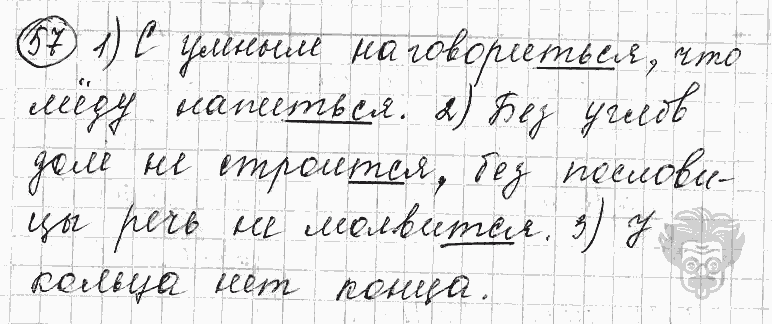 57 1) С умным наговориться, что
мёду напиться. 2) Без углов
дом не строится, без послови-
цы речь не молвится. 3) У
кольца нет конца.